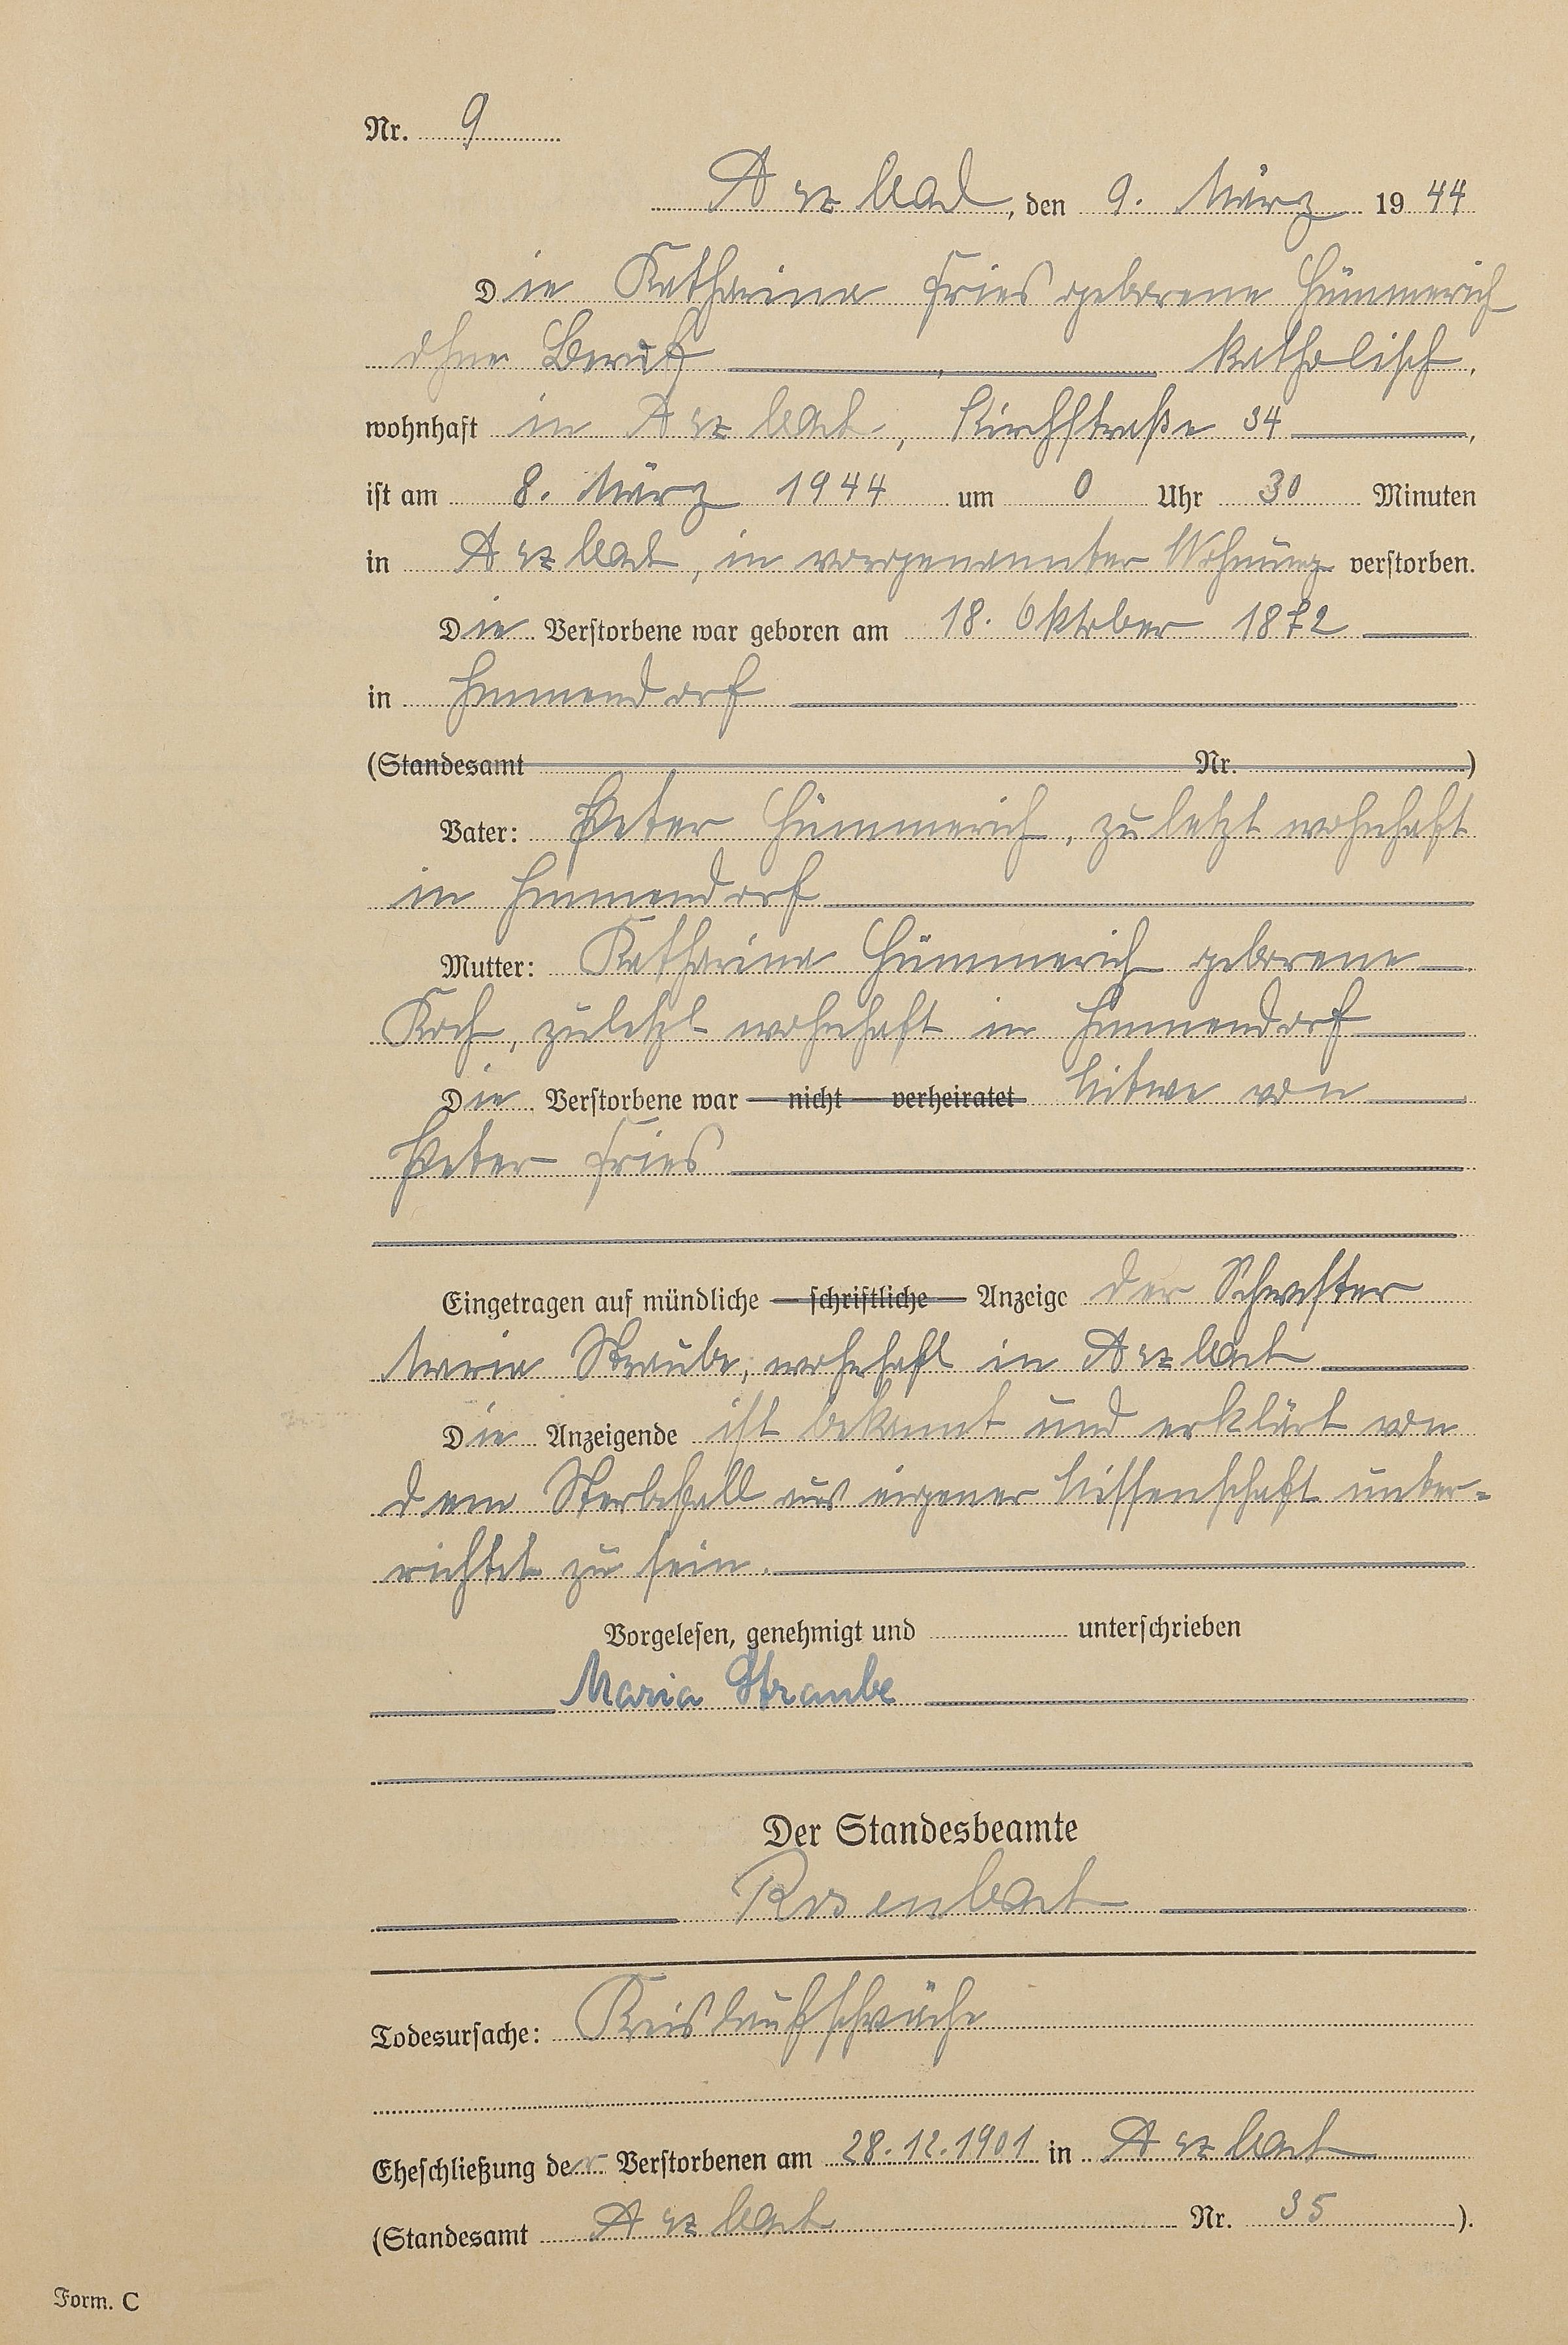 Nr. 9
Arzbach, den 9. März 1944
Die Katharina Fries geborene Hümmerich
ohne Beruf, katholisch,
wohnhaft in Arzbach, Kirchstraße 34,
ist am 8. März 1944 um 0 Uhr 30 Minuten
in Arzbach, in vorgenannter Wohnung verstorben.
Die Verstorbene war geboren am 18. Oktober 1872
in
(Standesamt Nr. )
Vater: Peter Hümmerich, zuletzt wohnhaft
in
Mutter: Katharina Hümmerich geborene
Koch, zuletzt wohnhaft in
Die Verstorbene war nicht verheiratet Witwe von
Peter Fries
Eingetragen auf mündliche schriftliche Anzeige der Schwester
Maria Straube, wohnhaft in Arzbach
Die Anzeigende ist bekannt und erklärt von
dem Sterbefall aus eigener Wissenschaft unter-
richtet zu sein.
Vorgelesen, genehmigt und unterschrieben
Maria Straube
Der Standesbeamte
Rosenbach
Todesursache: Kreislaufschwäche
Eheschließung der Verstorbenen am 28.12.1901 in Arzbach
(Standesamt Arzbach Nr. 35 ).
Form. C